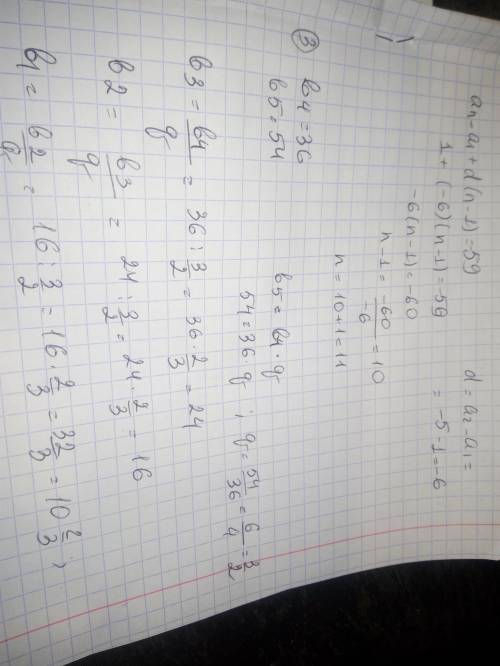 1)
an = a1 + d(n-1) = 59 d = a2 - a1 =
1 + (-6)(n-1) = -59 = -5-1 = -6
-6(n-1) = -60
n-1 = -60/-6 = 10
n = 10+1 = 11
③ b4 = 36
b5 = 54
b5 = b4 · q
54 = 36 · q ; q = 54/36 = 6/4 = 3/2
b3 = b4/q = 36 : 3/2 = 36 · 2/3 = 24
b2 = b3/q = 24 : 3/2 = 24 · 2/3 = 16
b1 = b2/q = 16 : 3/2 = 16 · 2/3 = 32/3 = 10 2/3 ;